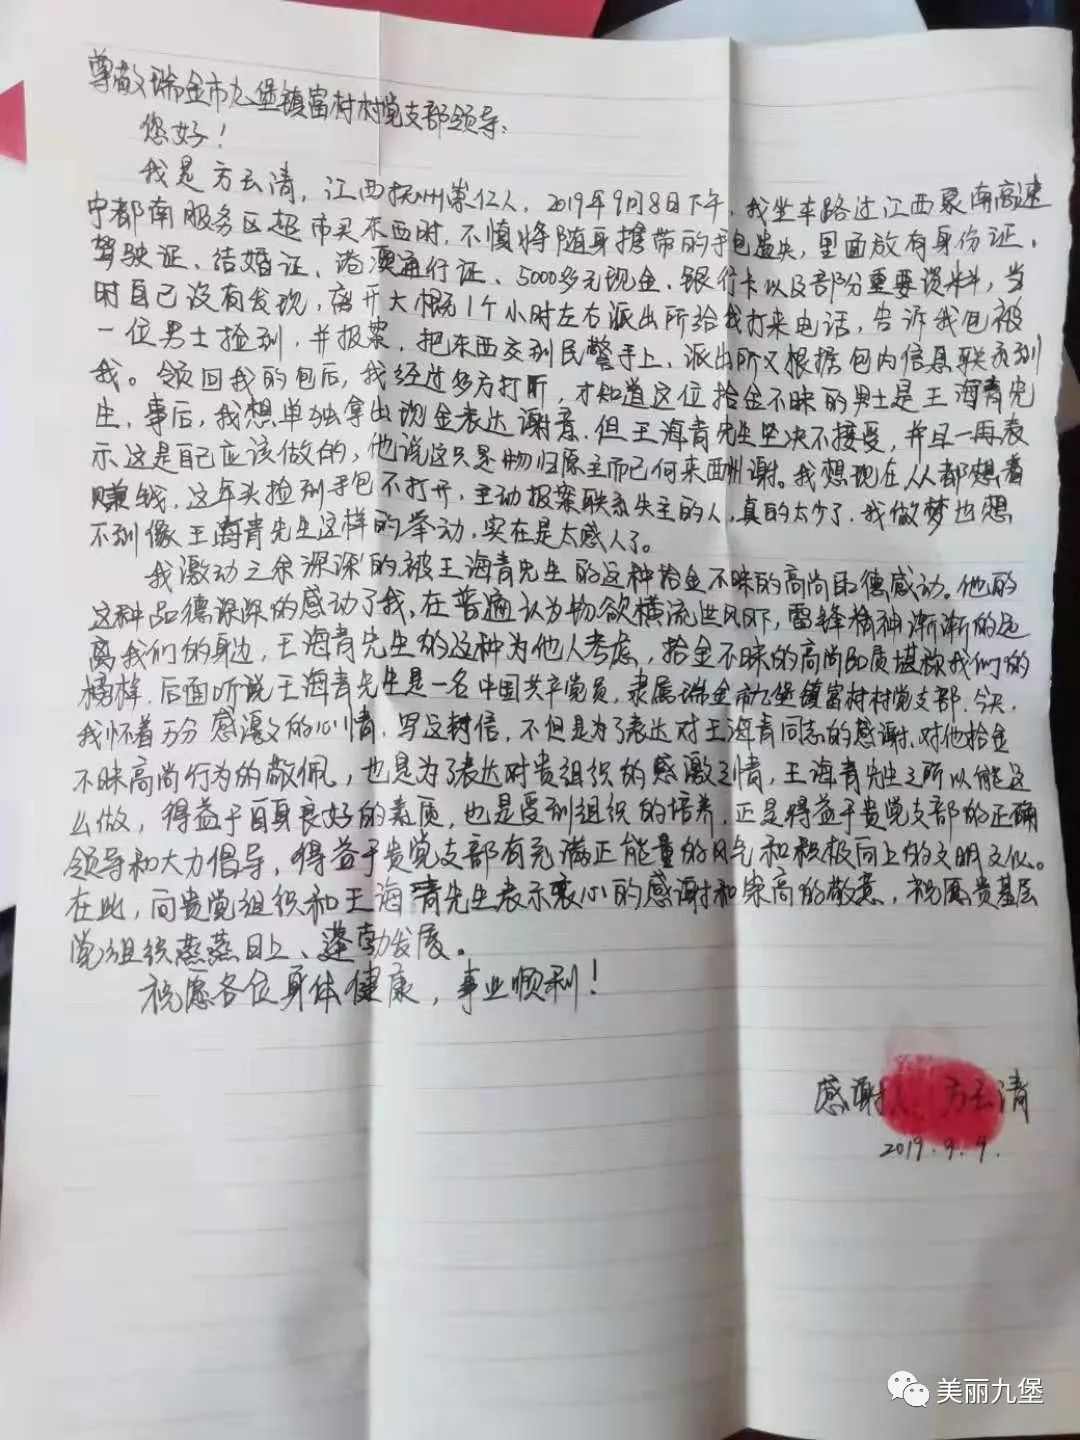 尊敬瑞金市九堡镇富村村党支部领导：
您好！
我是方云清，江西抚州崇仁人，2019年9月8日下午，我坐车路过江西泉南高速
宁都南服务区超市买东西时，不慎将随身携带的手包遗失，里面放有身份证、
驾驶证、结婚证、港澳通行证、5000多元现金、银行卡以及部分重要资料，当
时自己没有发现，离开大概1个小时左右派出所给我打来电话，告诉我包被
一位男士捡到，并报案，把东西交到民警手上、派出所又根据包内信息联系到
我。领回我的包后，我经过多方打听，才知道这位拾金不昧的男士是王海青先
生，事后，我想单独拿出现金表达谢意，但王海青先生坚决不接受，并且一再表
示这是自己应该做的，他说这只是物归原主而已何来酬谢。我想现在人人都想着
赚钱，这年头捡到手包不打开，主动报案联系失主的人，真的太少了，我做梦也想
不到像王海青先生这样的举动，实在是太感人了。
我激动之余深深的被王海青先生的这种拾金不昧的高尚品德感动。他的
这种品德深深的感动了我，在普遍认为物欲横流世风下，雷锋精神渐渐的远
离我们的身边，王海青先生的这种为他人考虑，拾金不昧的高尚品质堪称我们的
榜样，后面听说王海青先生是一名中国共产党员，隶属瑞金市九堡镇富村村党支部，今天，
我怀着万分感激的心情，写这封信，不但是为了表达对王海青同志的感谢，对他拾金
不昧高尚行为的敬佩，也是为了表达对贵组织的感激之情，王海青先生之所以能这
么做，得益于自身良好的素质，也是受到组织的培养，正是得益于贵党支部的正确
领导和大力倡导，得益于贵党支部有充满正能量的风气和积极向上的文明文化。
在此，向贵党组织和王海青先生表示衷心的感谢和崇高的敬意，祝愿贵基层
党组织燕燕日上、蓬勃发展。
祝愿各位身体健康，事业顺利！
感谢人 方云清
2019.9.9.
美丽九堡